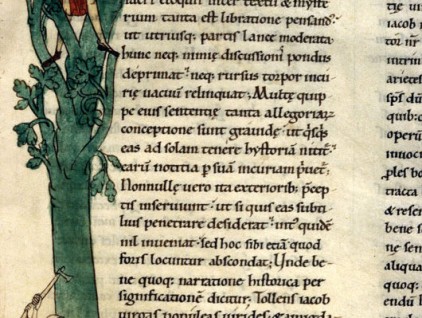 sacri eloquii inter textū & myste
rium tanta est libratione pensand᷒
ut utriusq; partis lance moderata
hunc neq; nimię discussionis pondus
deprimat᷒ neq; rursus torpor incu
rię vacuū relinquat; Multę quip
pe eius sententię tanta allegoriar
conceptione sunt grauidę᷒ ut qsqs
eas ad solam tenere hystoriā nitit᷒
earū notitia p suā incuriam puet᷒
Nonnullę uero ita exteriorib; pcep
tis inseruiunt᷒ ut si quis eas subti
lius penetrare desiderat᷒ int quidē
nil inueniat᷒ sed hoc sibi etiā quod
foris locuntur abscondat; Unde be
ne quoq; narratione historica per
significationē dicitur; Tollens iacob
uirgas populeas uirides᷒
iacob
intrin
arietes
sps dū
quib; c
operū
inuoc
ples bo
tracta
& reser
bene s
ne sem
aliqua
quoq;
endū